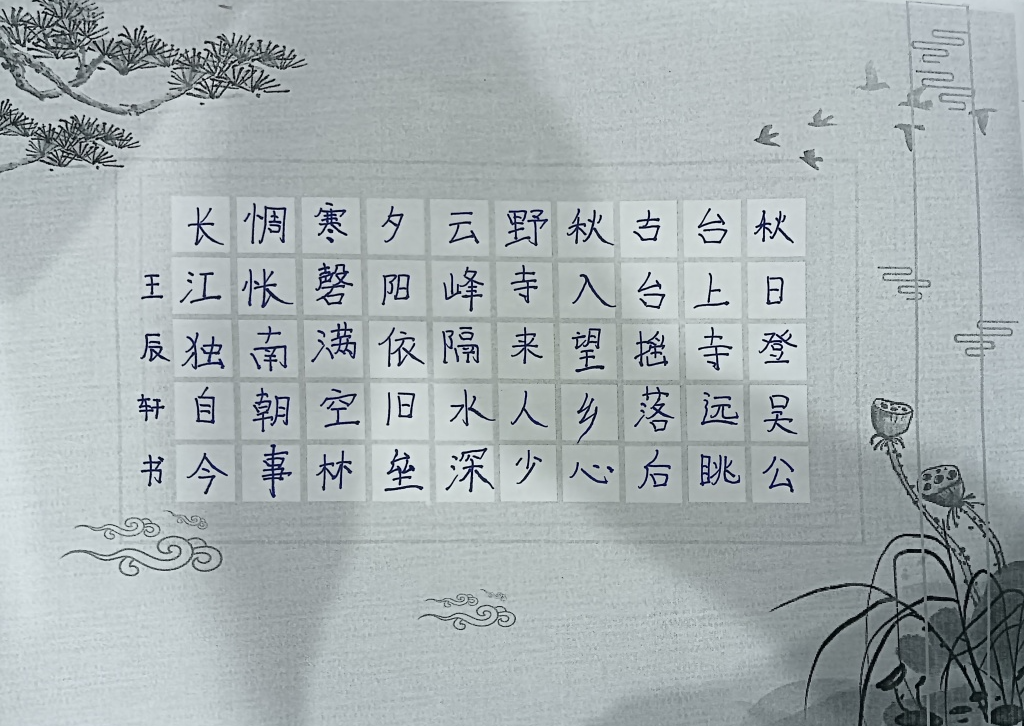 秋日登吴公
台上寺远眺
古台摇落后
秋入望乡心
野寺来人少
云峰隔水深
夕阳依旧垒
寒磬满空林
惆怅南朝事
长江独自今
王辰轩书